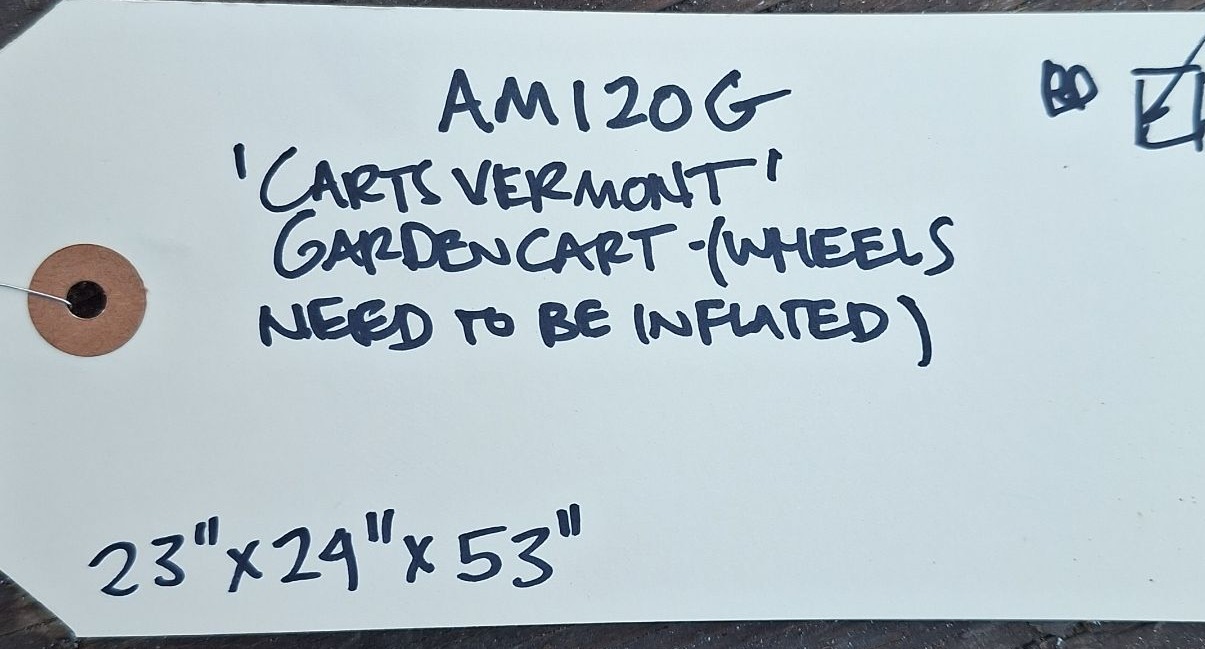 AM120G
BD
'CARTS VERMONT'
GARDEN CART - (WHEELS
NEED TO BE INFLATED)
23" x 29" x 53"